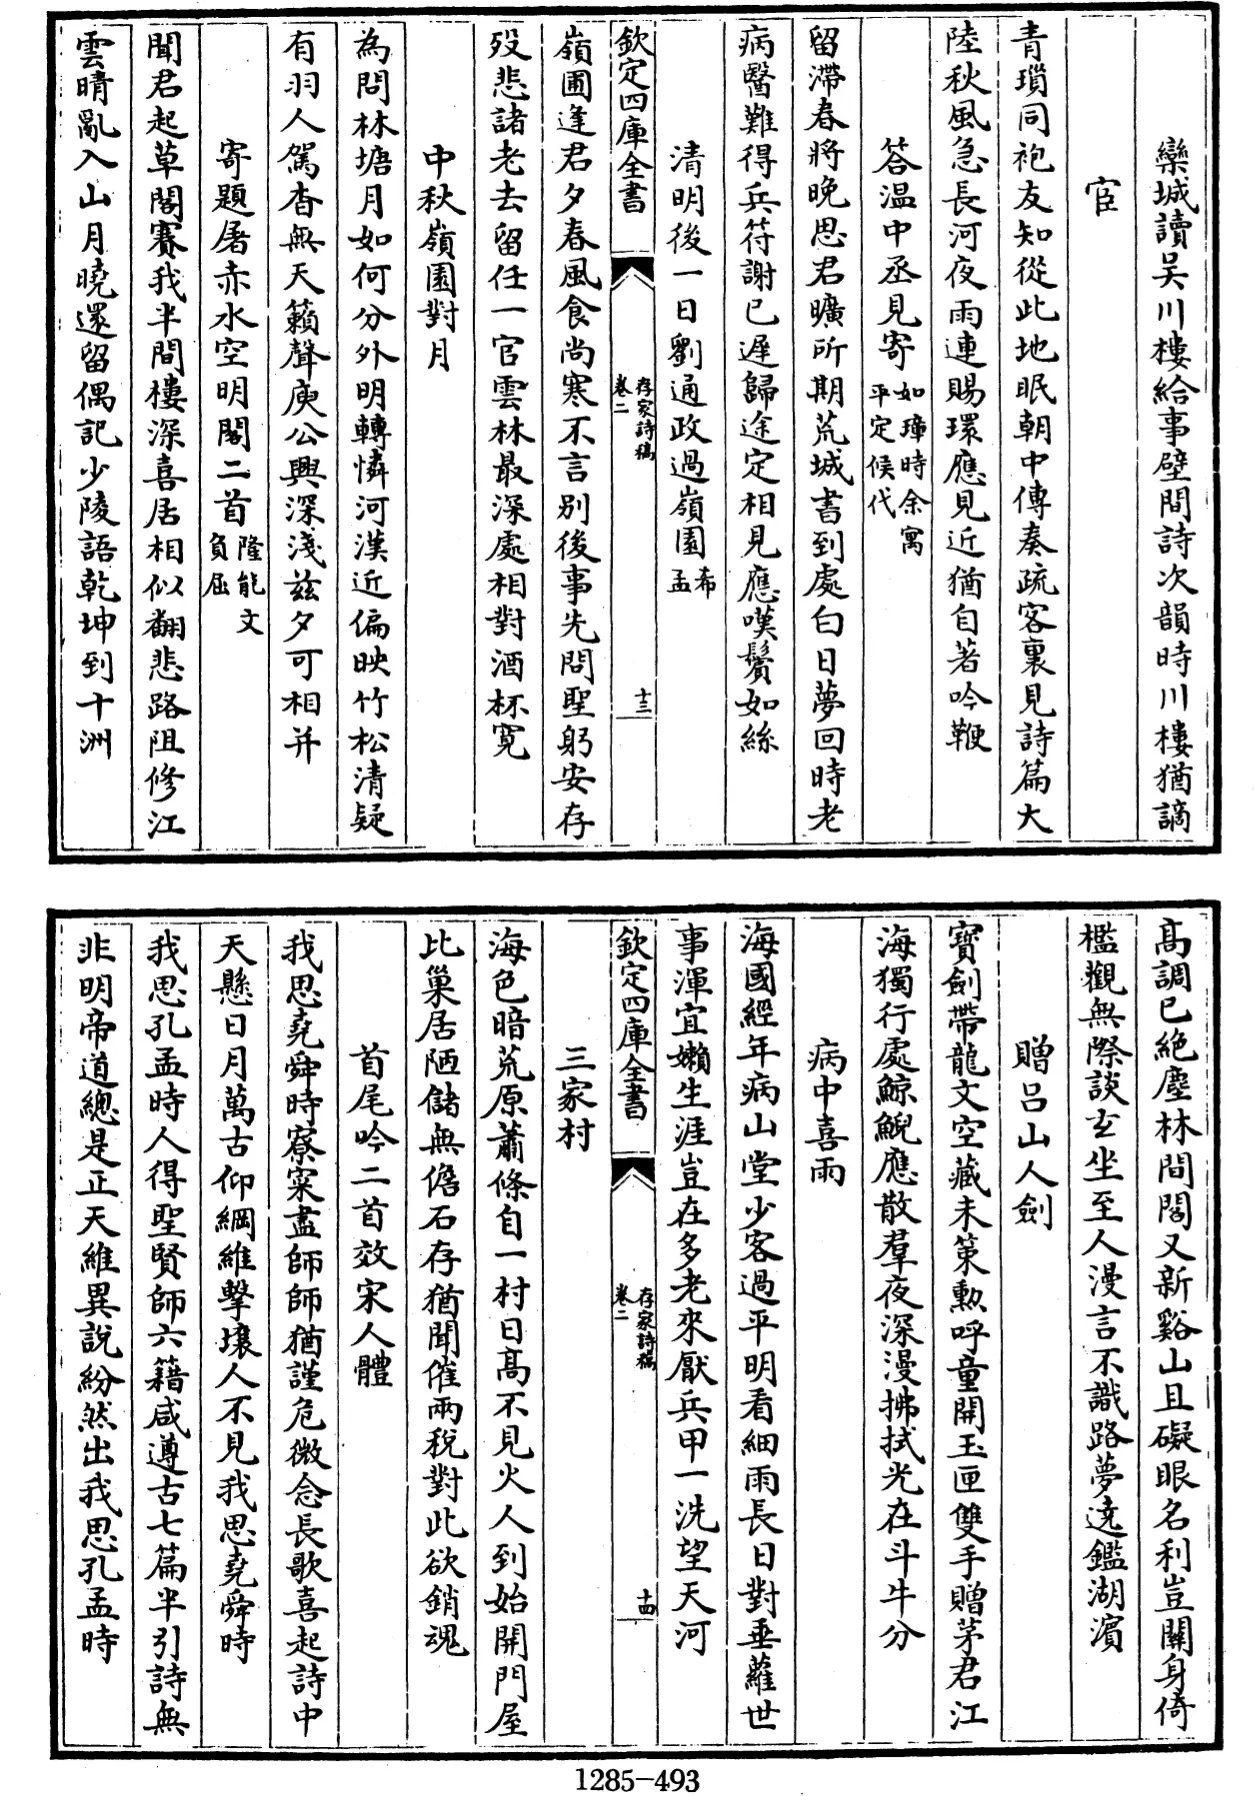 欒城讀吳川樓給事壁間詩次韻時川樓猶謫
宦
青瑣同袍友知從此地眠朝中傳奏疏客裏見詩篇大
陸秋風急長河夜雨連賜環應見近猶自著吟鞭
答温中丞見寄如璋時余寓平定候代
留滯春將晚思君曠所期荒城書到處白日夢回時老
病醫難得兵符謝已遲歸途定相見應嘆鬢如絲
清明後一日劉通政過嶺園希孟
欽定四庫全書
存家詩稿
卷二
十三
嶺圃逢君夕春風食尚寒不言别後事先問聖躬安存
殁悲諸老去留任一官雲林最深處相對酒杯寬
中秋嶺園對月
為問林塘月如何分外明轉憐河漢近偏映竹松清疑
有羽人駕杳無天籟聲庾公興深淺兹夕可相并
寄題屠赤水空明閣二首隆能文負屈
聞君起草閣賽我半間樓深喜居相似翻悲路阻修江
雲晴亂入山月曉還留偶記少陵語乾坤到十洲
髙調已絶塵林間閣又新谿山且礙眼名利豈關身倚
檻觀無際談玄坐至人漫言不識路夢遶鑑湖濱
贈吕山人劍
寶劍帶龍文空藏未策勲呼童開玉匣雙手贈茅君江
海獨行處鯨鯢應散羣夜深漫拂拭光在斗牛分
病中喜雨
海國經年病山堂少客過平明看細雨長日對垂蘿世
事渾宜嬾生涯豈在多老來厭兵甲一洗望天河
欽定四庫全書
存家詩稿
卷二
十四
三家村
海色暗荒原蕭條自一村日髙不見火人到始開門屋
比巢居陋儲無儋石存猶聞催兩税對此欲銷魂
首尾吟二首效宋人體
我思堯舜時寮寀盡師師猶謹危微念長歌喜起詩中
天懸日月萬古仰綱維擊壤人不見我思堯舜時
我思孔孟時人得聖賢師六籍咸遵古七篇半引詩無
非明帝道總是正天維異説紛然出我思孔孟時
1285-493